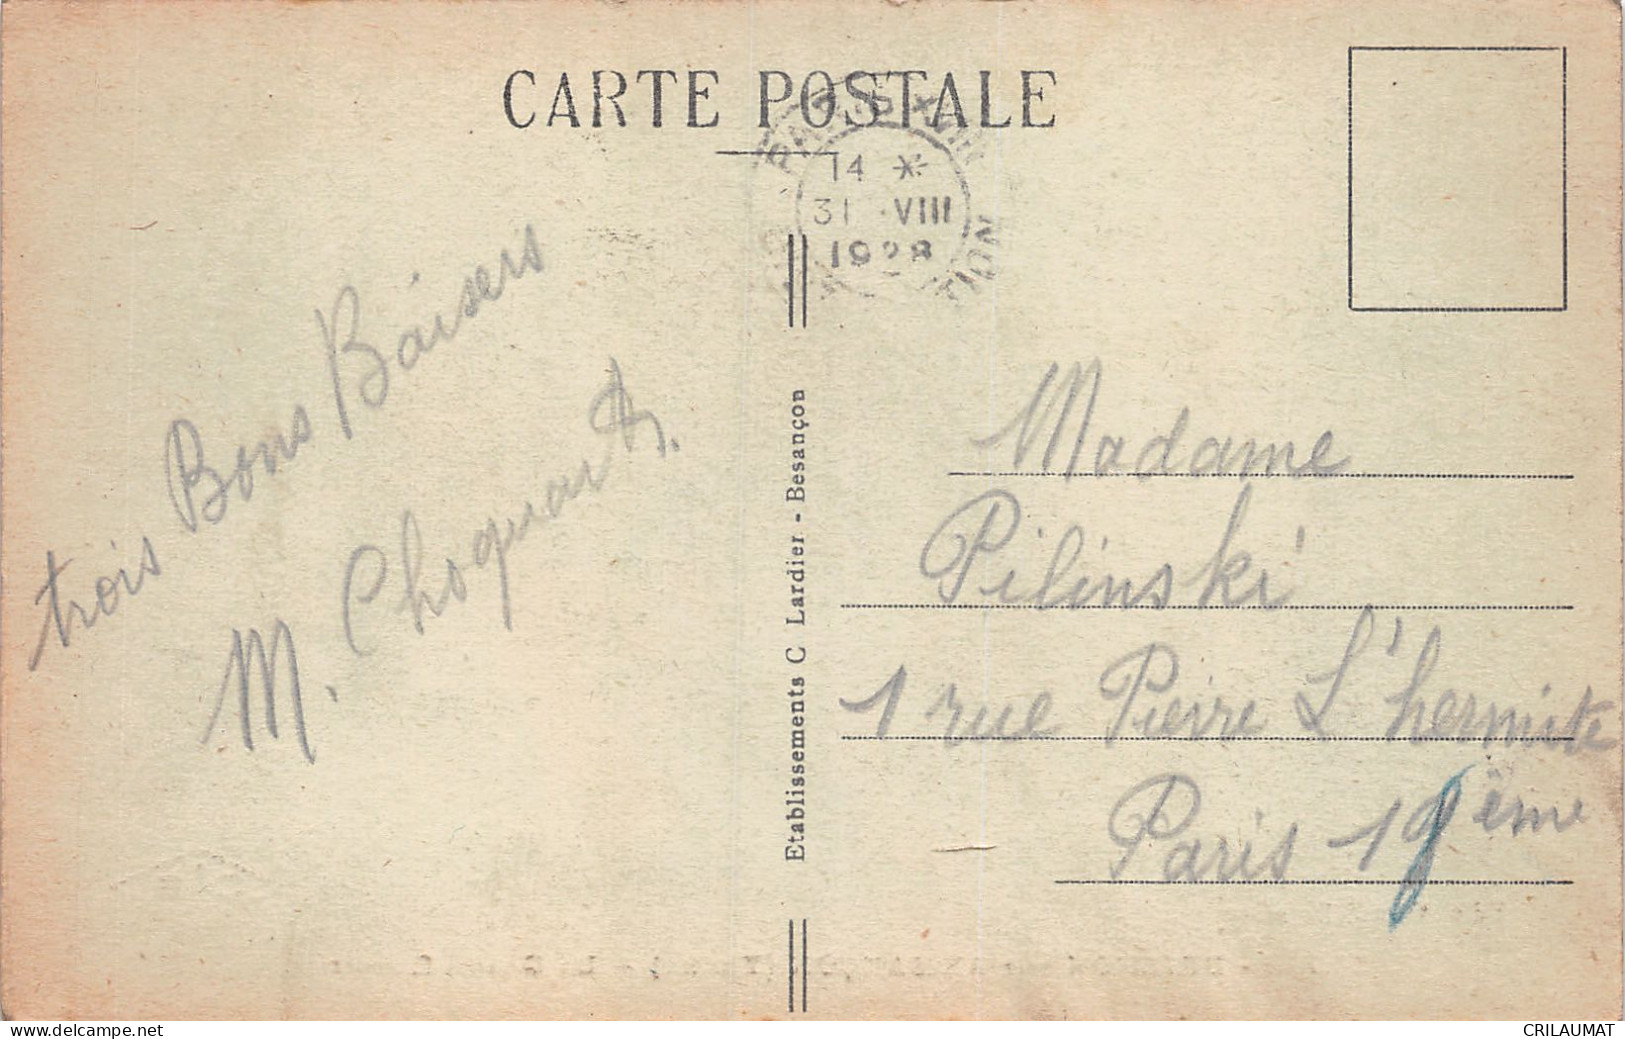 CARTE POSTALE
PARIS XVIII
14 *
31 · VIII
1928
trois Bons Baisers
M. Choquart.
Etablissements C Lardier - Besançon
Madame
Pilinski
1 rue Pierre L'hermite
Paris 18ème
www.delcampe.net
CRILAUMAT